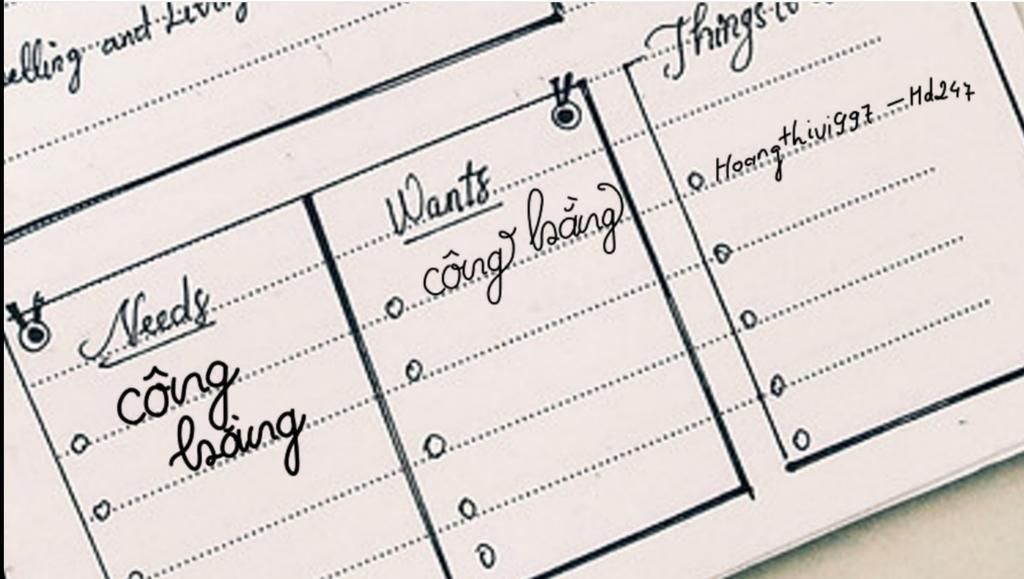 elling and Living
Things to
Hoangthivi997 - Hd247
Wants
công bằng
Needs
công
bằng